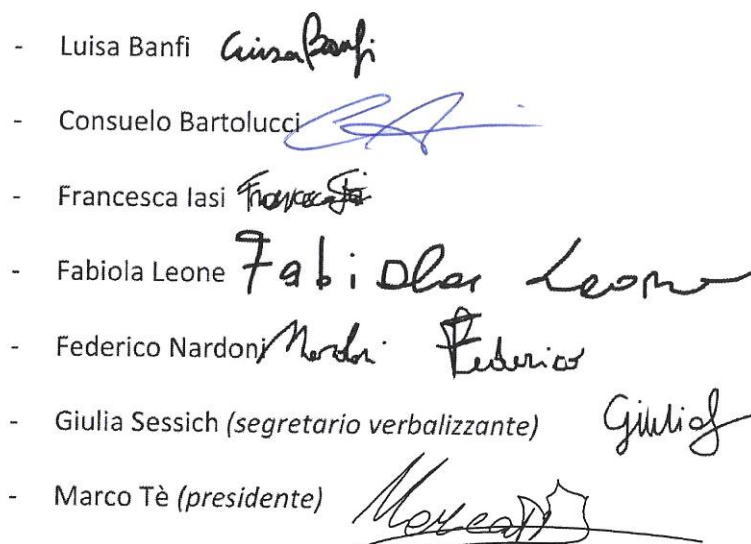 - Luisa Banfi Luisa Banfi
- Consuelo Bartolucci
- Francesca Iasi Francesca Iasi
- Fabiola Leone Fabiola Leone
- Federico Nardoni Nardoni Federico
- Giulia Sessich (segretario verbalizzante) Giulia S
- Marco Tè (presidente) Marco Tè